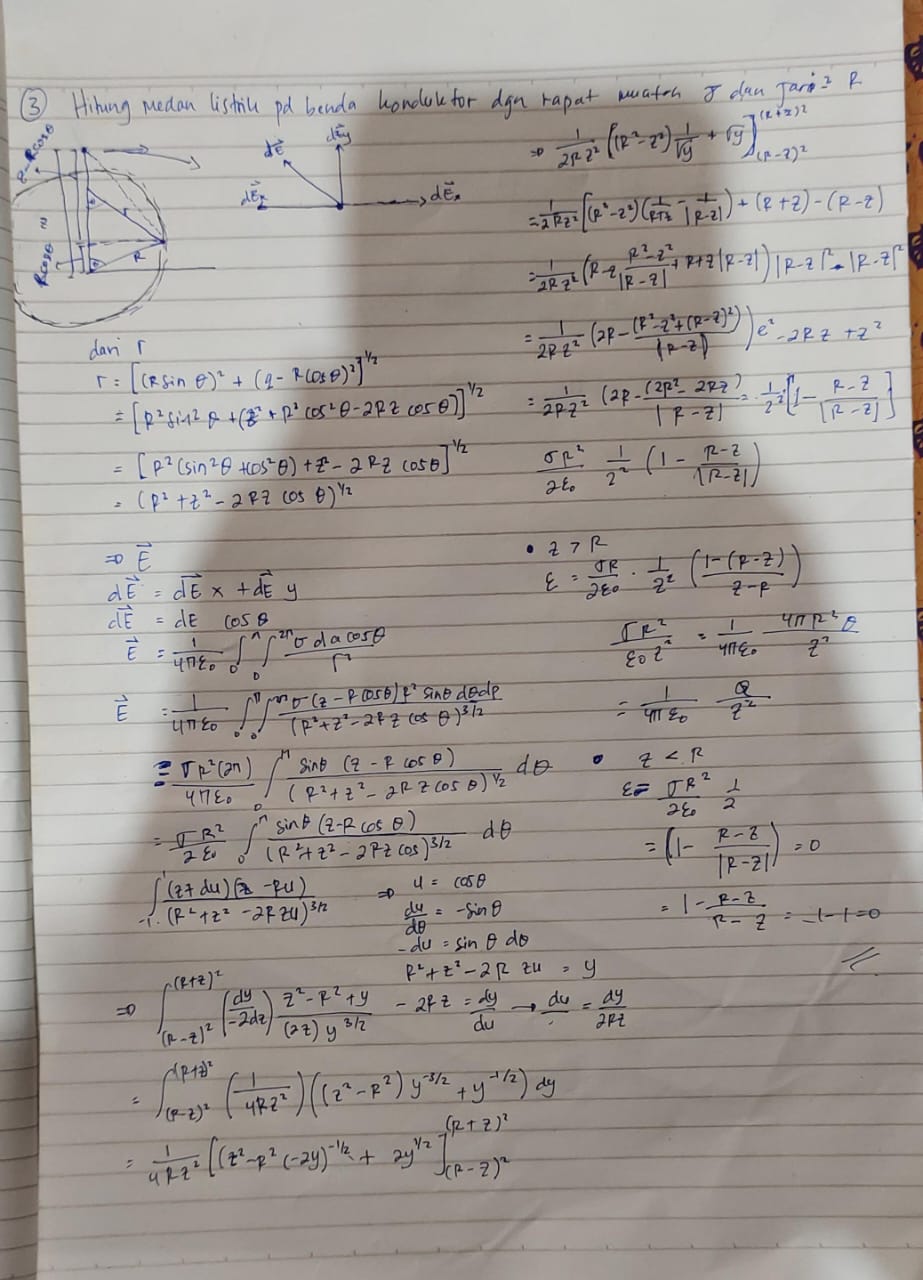 ③ Hitung medan listrik pd benda konduktor dgn rapat muatan σ dan jari² R
R-Rcosθ
z
Rcosθ
r
R
dE⃗
dE⃗y
dE⃗x
dE⃗x
dari r
r = [(R sin θ)² + (z - R cos θ)²]^1/2
= [R² sin² θ + (z² + R² cos² θ - 2Rz cos θ)]^1/2
= [R² (sin² θ + cos² θ) + z² - 2Rz cos θ]^1/2
= (R² + z² - 2Rz cos θ)^1/2
⇒ E⃗
dE⃗ = dE⃗ x + dE⃗ y
dE⃗ = dE cos θ
E⃗ = 1/4πε₀ ∫₀^π ∫₀^2π σ da cos θ / r²
E⃗ = 1/4πε₀ ∫₀^π ∫₀^2π σ (z - R cos θ) R² sin θ dθ dφ / (R² + z² - 2Rz cos θ)^3/2
= σR² (2π) / 4πε₀ ∫₀^π sin θ (z - R cos θ) / (R² + z² - 2Rz cos θ)^1/2 dθ
= σR² / 2ε₀ ∫₀^π sin θ (z - R cos θ) / (R² + z² - 2Rz cos)^3/2 dθ
∫₋₁^1 (z + du) (z - Ru) / (R² + z² - 2Rzu)^3/2 ⇒ u = cos θ
du/dθ = - sin θ
-du = sin θ dθ
R² + z² - 2R zu = y
⇒ ∫_(R-z)²^(R+z)² (dy / -2dz) z² - R² + y / (2z) y^3/2 - 2Rz = dy/du → du = dy/2Rz
= ∫_(R-z)²^(R+z)² (1/4Rz²) ((z² - R²) y^-3/2 + y^-1/2) dy
= 1/4Rz² [(z² - R² (-2y)^-1/2 + 2y^1/2]_(R-z)²^(R+z)²
⇒ 1/2Rz² [(R² - z²) 1/√y + √y]_(R-z)²^(R+z)²
= 1/2Rz² [(R² - z²) (1/R+z - 1/|R-z|) + (R + z) - (R - z)
= 1/2Rz² (R - z R² - z² / |R-z| + R + z |R-z|) |R-z|² = |R-z|²
= 1/2Rz² (2R - (R² - z² + (R-z)²) / |R-z|) e² - 2Rz + z²
= 1/2Rz² (2R - (2R² - 2Rz) / |R-z| = 1/z² [1 - R-z / |R-z|]
σR² / 2ε₀ 1/z² (1 - R-z / |R-z|)
• z > R
ε = σR / 2ε₀ · 1/z² (1 - (R-z) / z-R)
σR² / ε₀z² = 1/4πε₀ 4πR²θ / z²
= 1/4πε₀ Q/z²
• z < R
ε = σR² / 2ε₀ 1/2
= (1 - R-z / |R-z|) = 0
= 1 - R-z / R-z = -1-1=0